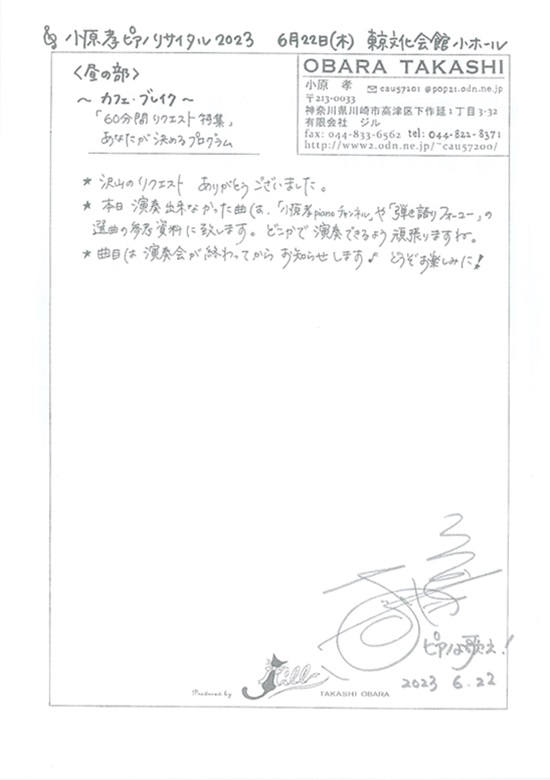 小原孝ピアノリサイタル2023 6月22日(木) 東京文化会館小ホール
<昼の部>
〜カフェ・ブレイク〜
「60分間リクエスト特集」
あなたが決めるプログラム
OBARA TAKASHI
小原 孝 ✉cau57201@pop21.odn.ne.jp
〒213-0033
神奈川県川崎市高津区下作延1丁目3-32
有限会社 ジル
fax: 044-833-6562 tel: 044-822-8371
http://www2.odn.ne.jp/~cau57200/
★ 沢山のリクエスト ありがとうございました。
★ 本日 演奏出来なかった曲は、「小原孝pianoチャンネル」や「弾き語りフォーユー」の
選曲の参考資料に致します。どこかで演奏できるよう 頑張りますね。
★ 曲目は 演奏会が終わってから お知らせします♪ どうぞお楽しみに!
ピアノよ歌え!
2023 6.22
Produced by Jill TAKASHI OBARA